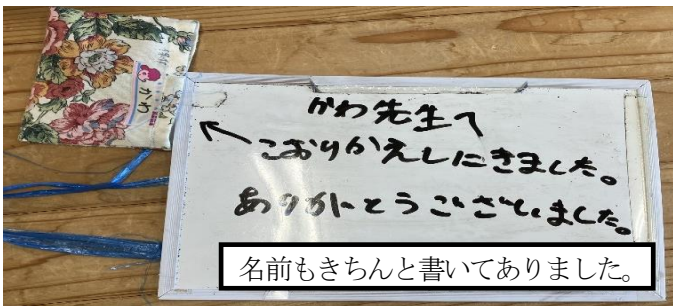 かわ
かわ先生へ
←こおりかえしにきました。
ありがとうございました。
名前もきちんと書いてありました。